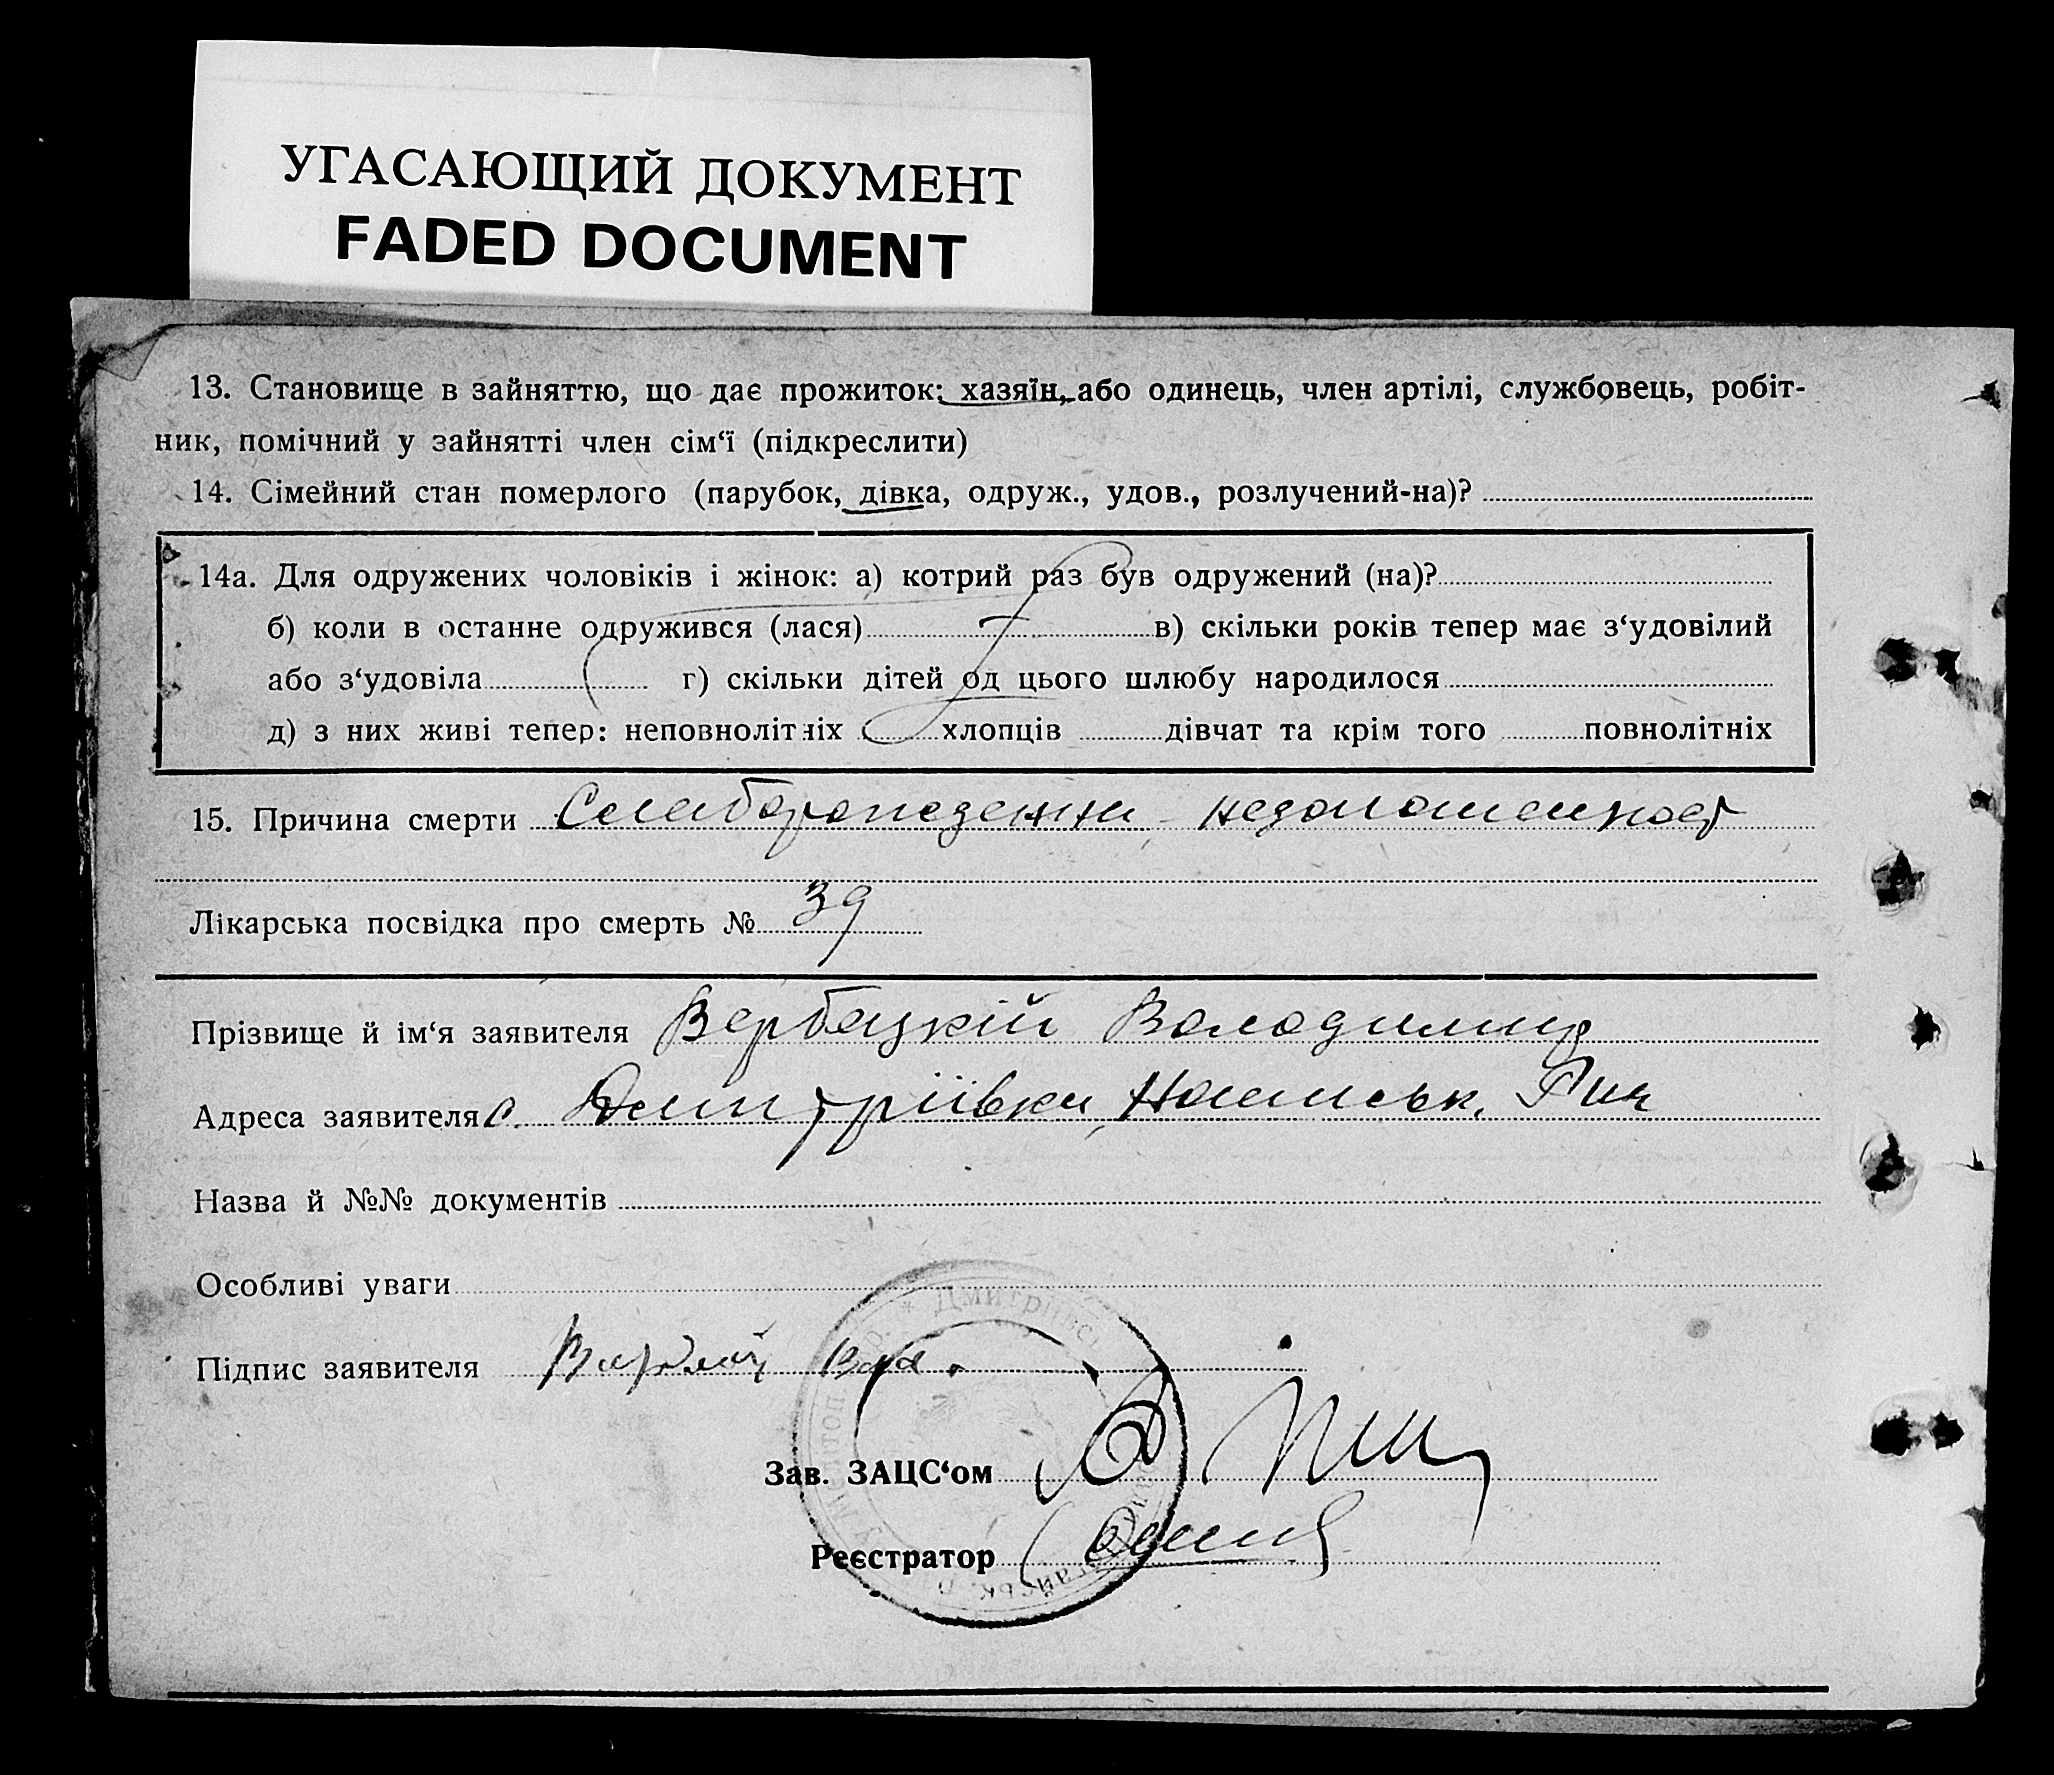 УГАСАЮЩИЙ ДОКУМЕНТ
FADED DOCUMENT
13. Становище в зайняттю, що дає прожиток: хазяїн, або одинець, член артілі, службовець, робіт-
ник, помічний у зайнятті член сім‘ї (підкреслити)
14. Сімейний стан померлого (парубок, дівка, одруж., удов., розлучений-на)?
14а. Для одружених чоловіків і жінок: а) котрий раз був одружений (на)?
б) коли в останнє одружився (лася) в) скільки років тепер має з‘удовілий
або з‘удовіла г) скільки дітей од цього шлюбу народилося
д) з них живі тепер: неповнолітніх хлопців дівчат та крім того повнолітніх
15. Причина смерти
Лікарська посвідка про смерть № 39
Прізвище й ім‘я заявителя Вербацкій Володимир
Адреса заявителя с. Дмитріївки
Назва й №№ документів
Особливі уваги
Підпис заявителя
Зав. ЗАЦС‘ом
Реєстратор